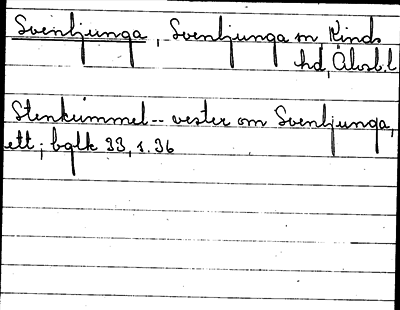 Svenljunga, Svenljunga sn Kinds
hd, Älvsb.l
Stenkummel -- vester om Svenljunga,
ett; bglk 33, s. 36